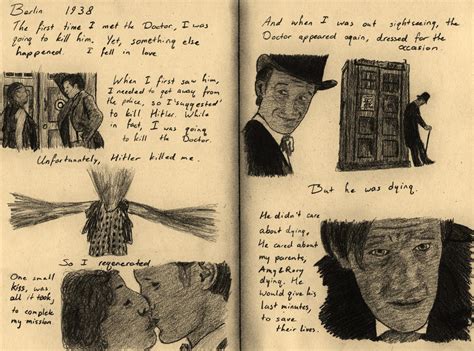 Berlin 1938
The first time I met the Doctor, I was
going to kill him. Yet, something else
happened. I fell in love.
When I first saw him,
I needed to get away from
the police, so I 'suggested'
to kill Hitler. While
in fact, I was going
to kill the Doctor.
Unfortunately, Hitler killed me.
So I regenerated
One small
kiss, was
all it took,
to complete
my mission
And when I was out sightseeing, the
Doctor appeared again, dressed for the
occasion.
But he was dying.
He didn't care
about dying,
He cared about
my parents,
Amy & Rory
dying. He
would give his
last minutes,
to save
their lives.